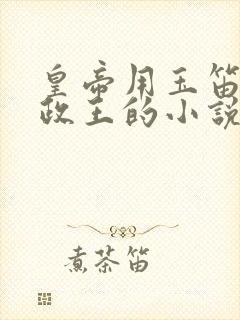 皇帝用玉笛
政王的小説
煮茶笛